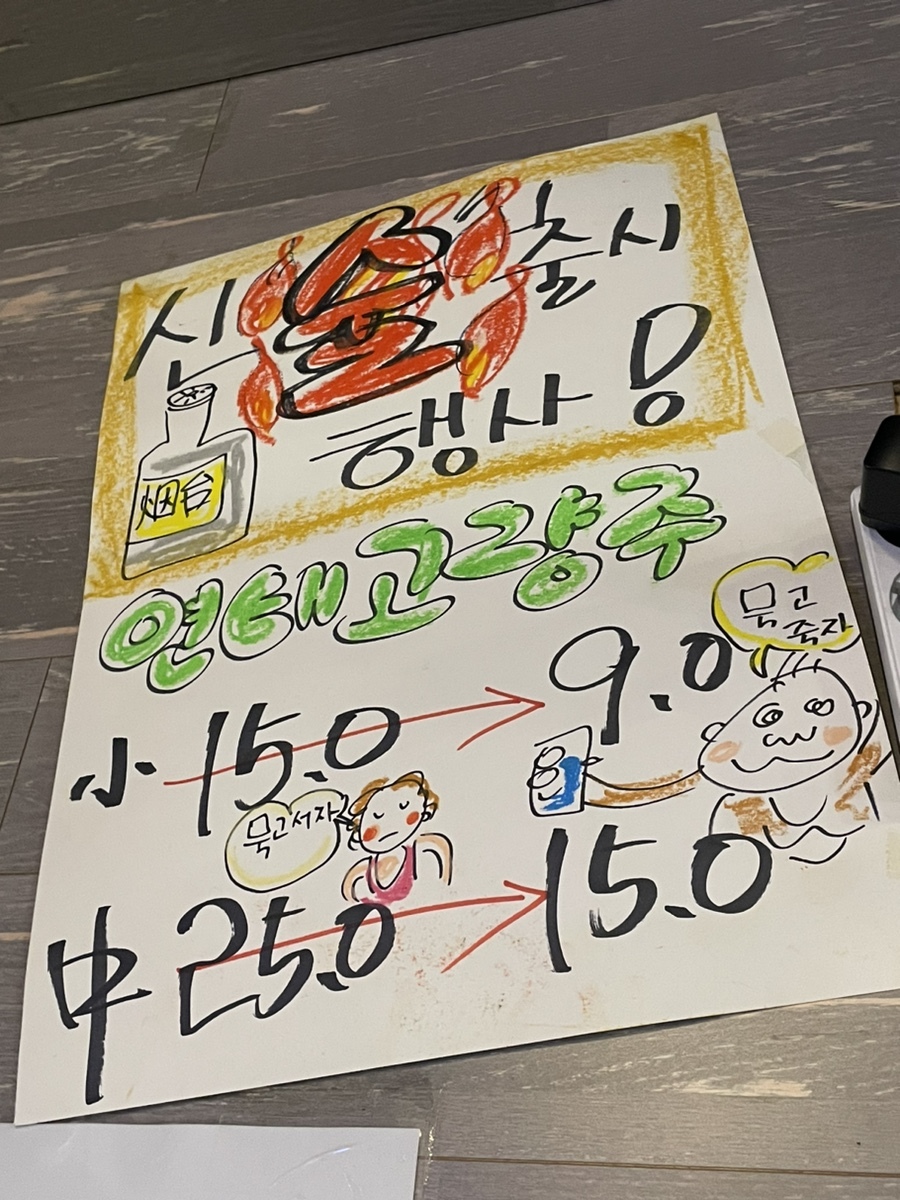 신술출시
행사!
烟台
연태고량주
小 15.0 → 9.0
묵고죽자
묵고서자
中 25.0 → 15.0